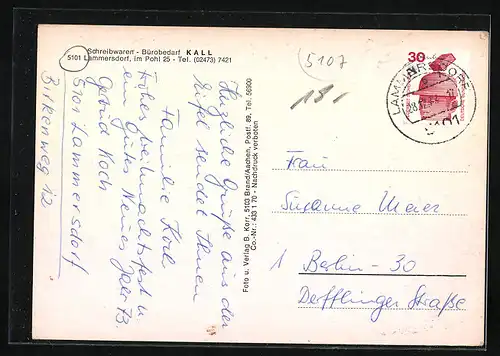 Schreibwaren - Bürobedarf KALL
5101 Lammersdorf, im Pohl 25 - Tel. (02473) 7421
5107
30
LAMMERSDORF
5101
131-
Herzliche Grüße aus der
Eifel sendet Ihnen
Familie Koch
Frohes Weihnachtsfest u.
ein Gutes Neues Jahr 73.
Gertrud Koch
5101 Lammersdorf
Birkenweg 12
Foto u. Verlag B. Korr, 5103 Brand/Aachen, Postf. 89, Tel. 56000
Co.-Nr.: 433 1 70 - Nachdruck verboten
Frau
Susanne Meier
1 Berlin-30
Derfflinger Straße